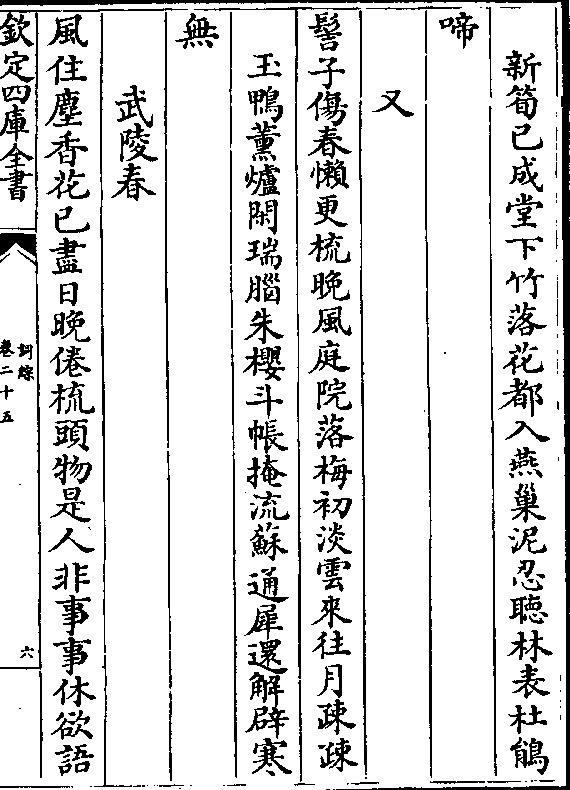 新筍已成堂下竹落花都入燕巢泥忍聴林表杜鵑
啼
又
髻子傷春懶更梳晚風庭院落梅初淡雲來往月疎疎
玉鴨薰爐閑瑞腦朱櫻斗帳掩流蘇通犀還解辟寒
無
武陵春
風住塵香花已盡日晚倦梳頭物是人非事事休欲語
欽定四庫全書
詞綜
卷二十五
六